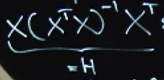 X(XᵀX)⁻¹Xᵀ
=H